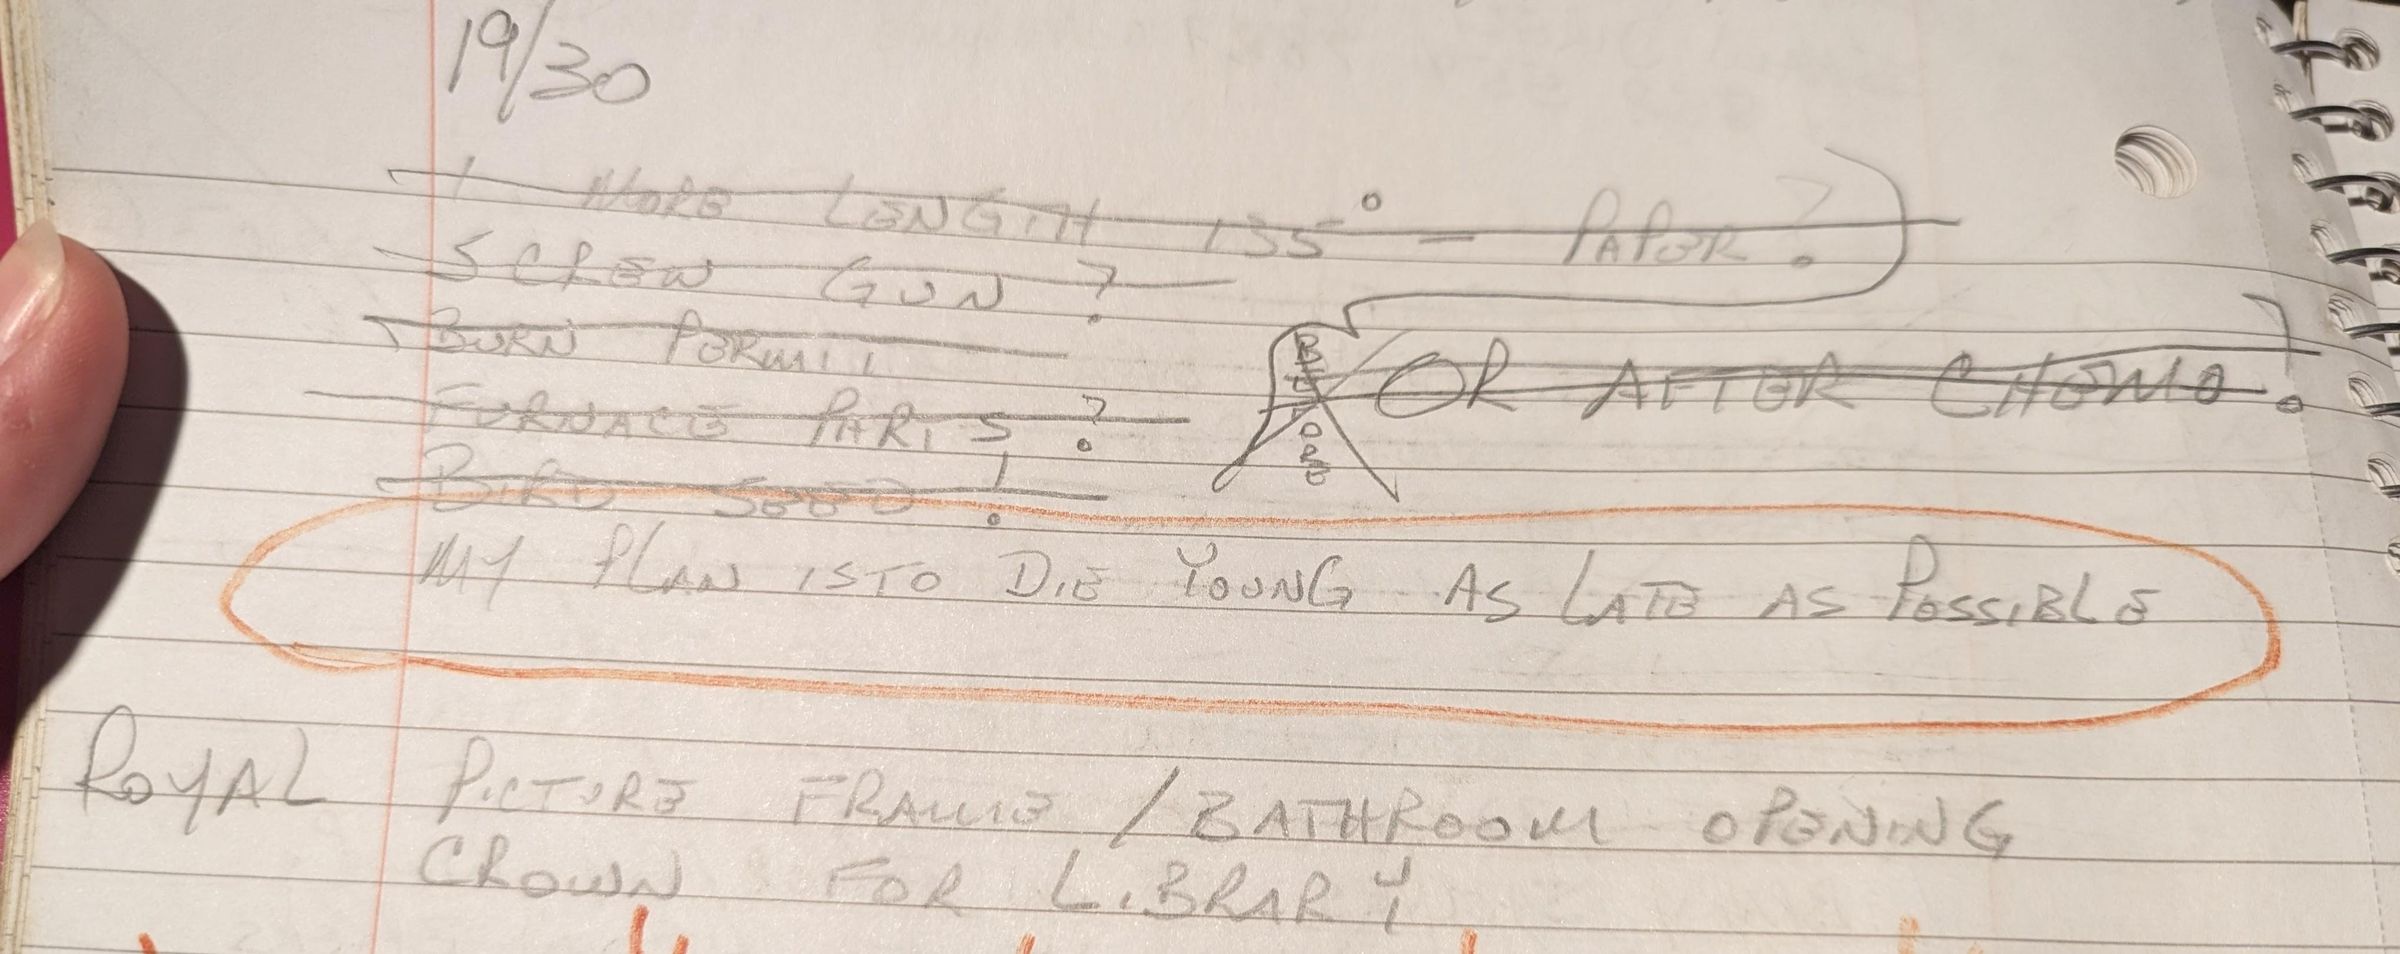 19/30
1 MORE LENGTH 135° – PAPER?
SCREW GUN?
BURN PERMIT
BEFORE OR AFTER CHEMO.
FURNACE PARTS?
BIRD SEED!
MY PLAN IS TO DIE YOUNG AS LATE AS POSSIBLE
ROYAL PICTURE FRAME / BATHROOM OPENING
CROWN FOR LIBRARY